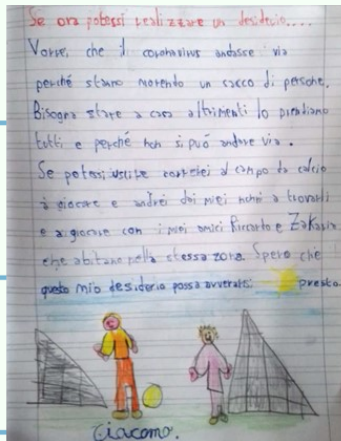 Se ora potessi realizzare un desiderio....
Vorrei che il coronavirus andasse via
perché stanno morendo un sacco di persone.
Bisogna stare a casa altrimenti lo prendiamo
tutti e perché non si può andare via.
Se potessi uscire correrei al campo da calcio
a giocare e andrei dai miei nonni a trovarli
e a giocare con i miei amici Riccardo e Zakaria
che abitano nella stessa zona. Spero che
questo mio desiderio possa avverarsi presto
Giacomo.